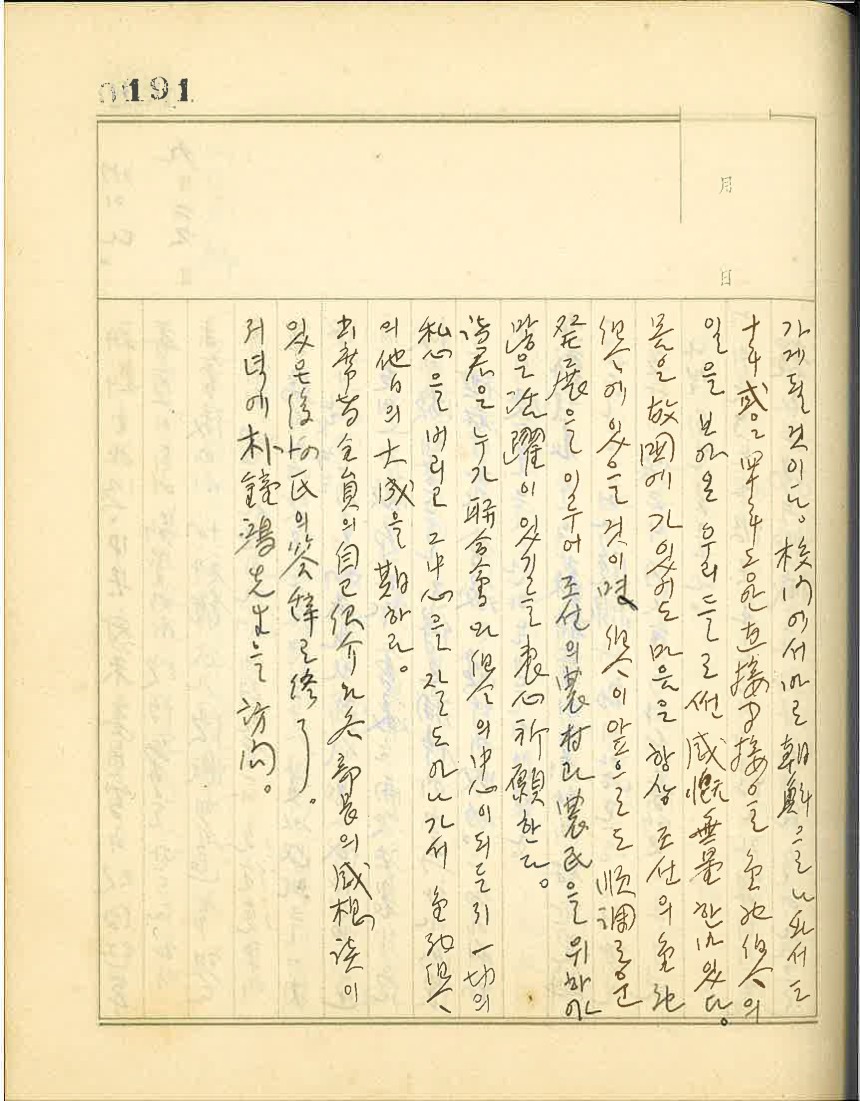 191
月
日
가게될 것이다. 校內에서 바로 朝鮮으로 나와서도
十年 或은 四年도안 直接 間接으로 金組의
일을 보아온 우리들로썬 感慨無量한바 있다.
몸은 故國에 가 있어도 마음은 항상 조선의
에 있을 것이며 이 앞으로도 順調로운
발展을 일우어 조선의 農村과 農民을 위하야
많은 活躍이 있기를 衷心 祈願한다.
諸君은 누가 聯合會와 의 中心이 되든지 一切의
私心을 버리고 그 中心을 잘 도아나가서
의 他日의 大成을 期하라.
出席者 全員의 自己紹介와 各 部長의 感想談이
있은 後 氏의 答辭로 終了.
저녁에 朴鐘鴻先生을 訪問.